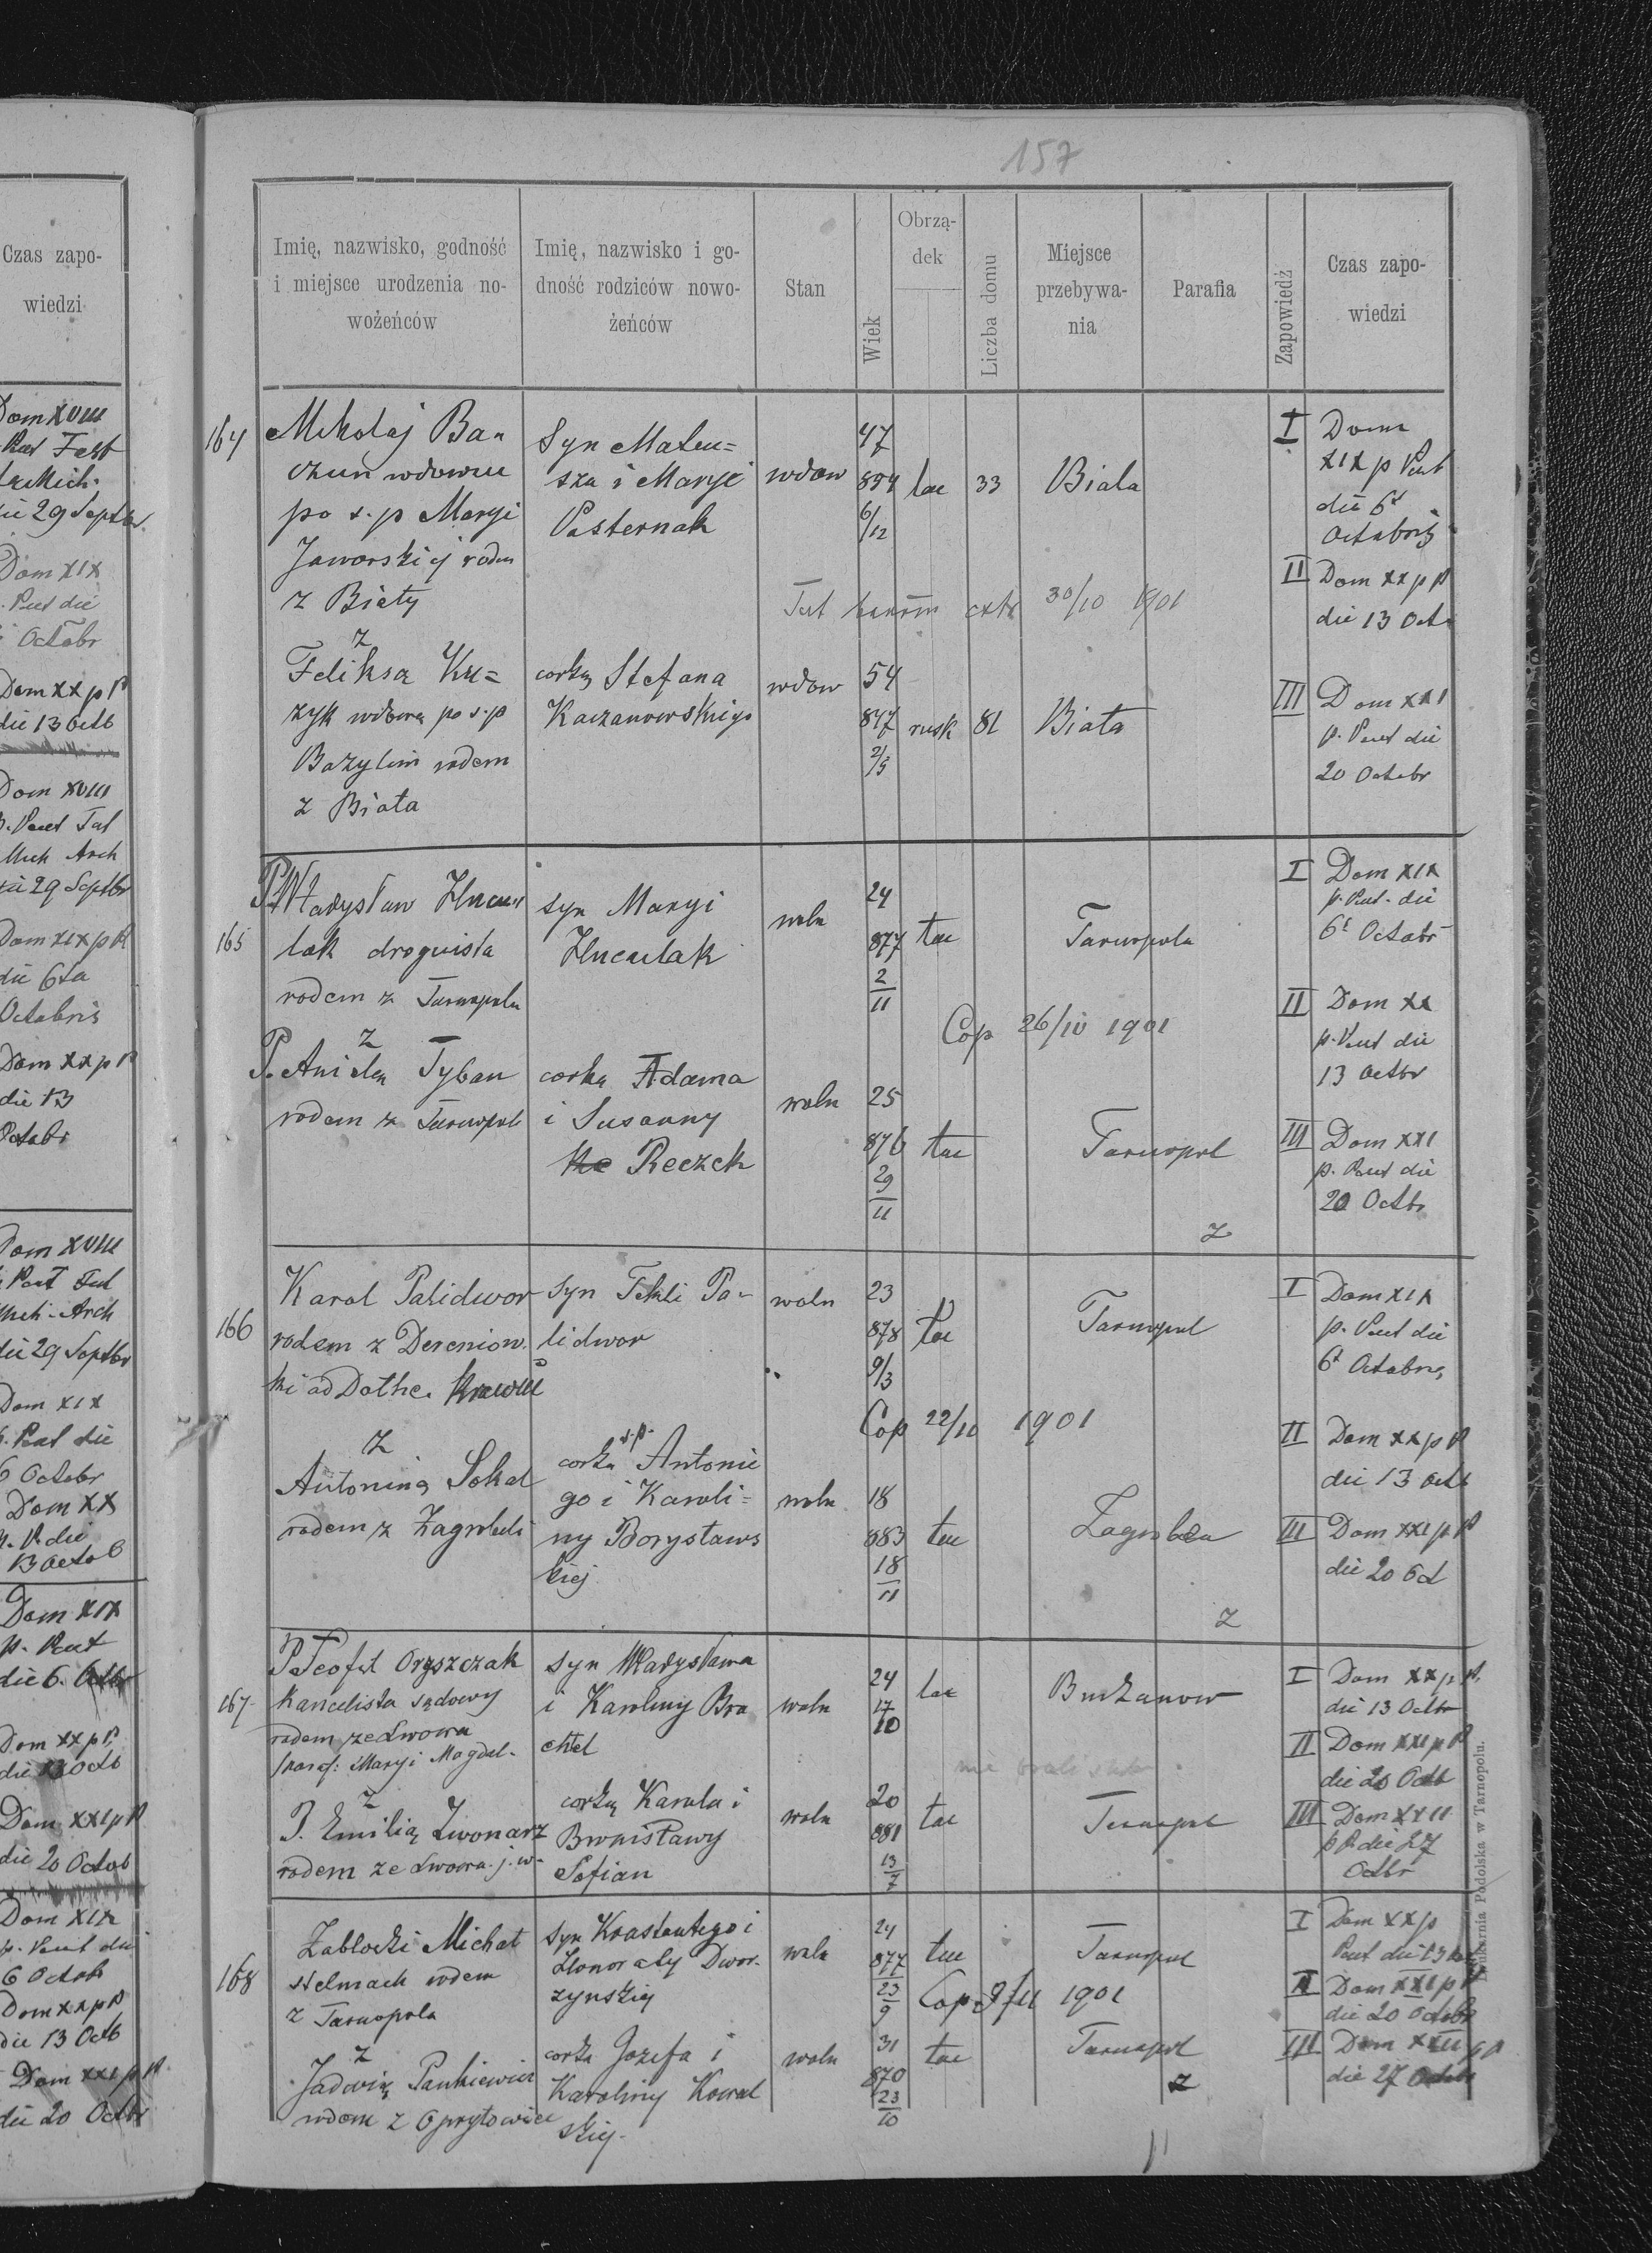 157
Czas zapo-
wiedzi
Imię, nazwisko, godność
i miejsce urodzenia no-
wożeńców
Imię, nazwisko i go-
dność rodziców nowo-
żeńców
Stan
Wiek
Obrzą-
dek
Liczba domu
Miejsce
przebywa-
nia
Parafia
Zapowiedź
Czas zapo-
wiedzi
Dom XVIII
die 29 Septbr
Dom XIX
Pent die
Octobr
Dom XX p P
die 13 Octb
Dom XVIII
Mich Arch
29 Septbr
Dom XIX p P
die 6ta
Octobris
Dom XX p P
die 13
Octobr
Dom XVIII
Arch
die 29 Septbr
Dom XIX
p. Pent die
6 Octobr
Dom XX
p. P. die
13 Octob
Dom XIX
p. Pent
die 6. Octbr
Dom XX p P.
die 13 Octb
Dom XXI p P
die 20 Octob
Dom XIX
p. Pent die
6 Octob
Dom XX p P
die 13 Octb
Dom XXI p P
die 20 Octbr
164
Mikołaj Ba-
po ś.p Maryi
Jaworskiej rodem
z Biały
Syn Mateu=
sza i Maryi
Pasternak
wdow
47
854
6/12
lac
33
Biała
30/10 1901
z
Feliksa Ku=
zyk wdowa po ś.p
Bazylim rodem
z Biała
corka Stefana
Kaczanowskiego
wdow
54
847
2/5
rusk
81
Biała
I Dom
XIX p Pent
die 6t
Octobris
II Dom XX p P
die 13 Oct
III Dom XXI
p. Pent die
20 Octobr
165
P. Władysław Hucu-
lak droguista
rodem z Tarnopola
syn Maryi
Huculak
woln
24
877
2
11
lac
Tarnopola
Cop 26/10 1901
z
P. Aniela Tyban
rodem z Tarnopol
corka Adama
i Susanny
Reczek
woln
25
876
29
11
lac
Tarnopol
z
I Dom XIX
p. Pent. die
6t Octobr
II Dom XX
p. Pent die
13 Octbr
III Dom XXI
p. Pent die
20 Octbr
166
Karol Palidwor
rodem z Dereniow.
syn Tekli Pa-
lidwor
woln
23
878
9/3
lac
Tarnopol
Cop 22/10 1901
z
Antonina Sokal
rodem z Zagrobeli
ś.p.
corka Antonie
go i Karoli=
ny Borysławs
kiej
woln
18
883
18
11
lac
Zagrobela
z
I Dom XIX
p. Pent die
6t Octobris
II Dom XX p P
die 13 Octb
III Dom XXI p. P
die 20 Oct
167.
P. Teofil Oryszczak
Kancelista sądowy
rodem ze Lwowa
paraf: Maryi Magdal.
syn Władysława
i Karoliny Bra
chel
woln
24
17
10
lac
Burkanow
z
P. Emilią Zwonarz
rodem ze Lwowa. j. w.
corką Karola i
Bronisławy
Sofian
woln
20
881
13
7
lac
Tarnopol
I Dom XX p. P.
die 13 Octbr
II Dom XXI p P
die 20 Octb
III Dom XXII
p P. die 27
Octbr
168
Zabłocki Michał
stelmach rodem
z Tarnopola
syn Konstantego i
Honoraty Dwor-
zyńskiej
woln
24
877
23
9
lac
Tarnopol
Cop 9/11 1901
z
Jadwiga Pankiewicz
rodem z Opryłowiec
corka Jozefa i
Karoliny Kowal
skiej.
woln
31
870
23
10
lac
Tarnopol
z
I Dom XX p
Pent die 13
II Dom XXI p P
die 20 Octobr
III Dom XXII p P
die 27 Octobr
Drukarnia Podolska w Tarnopolu.